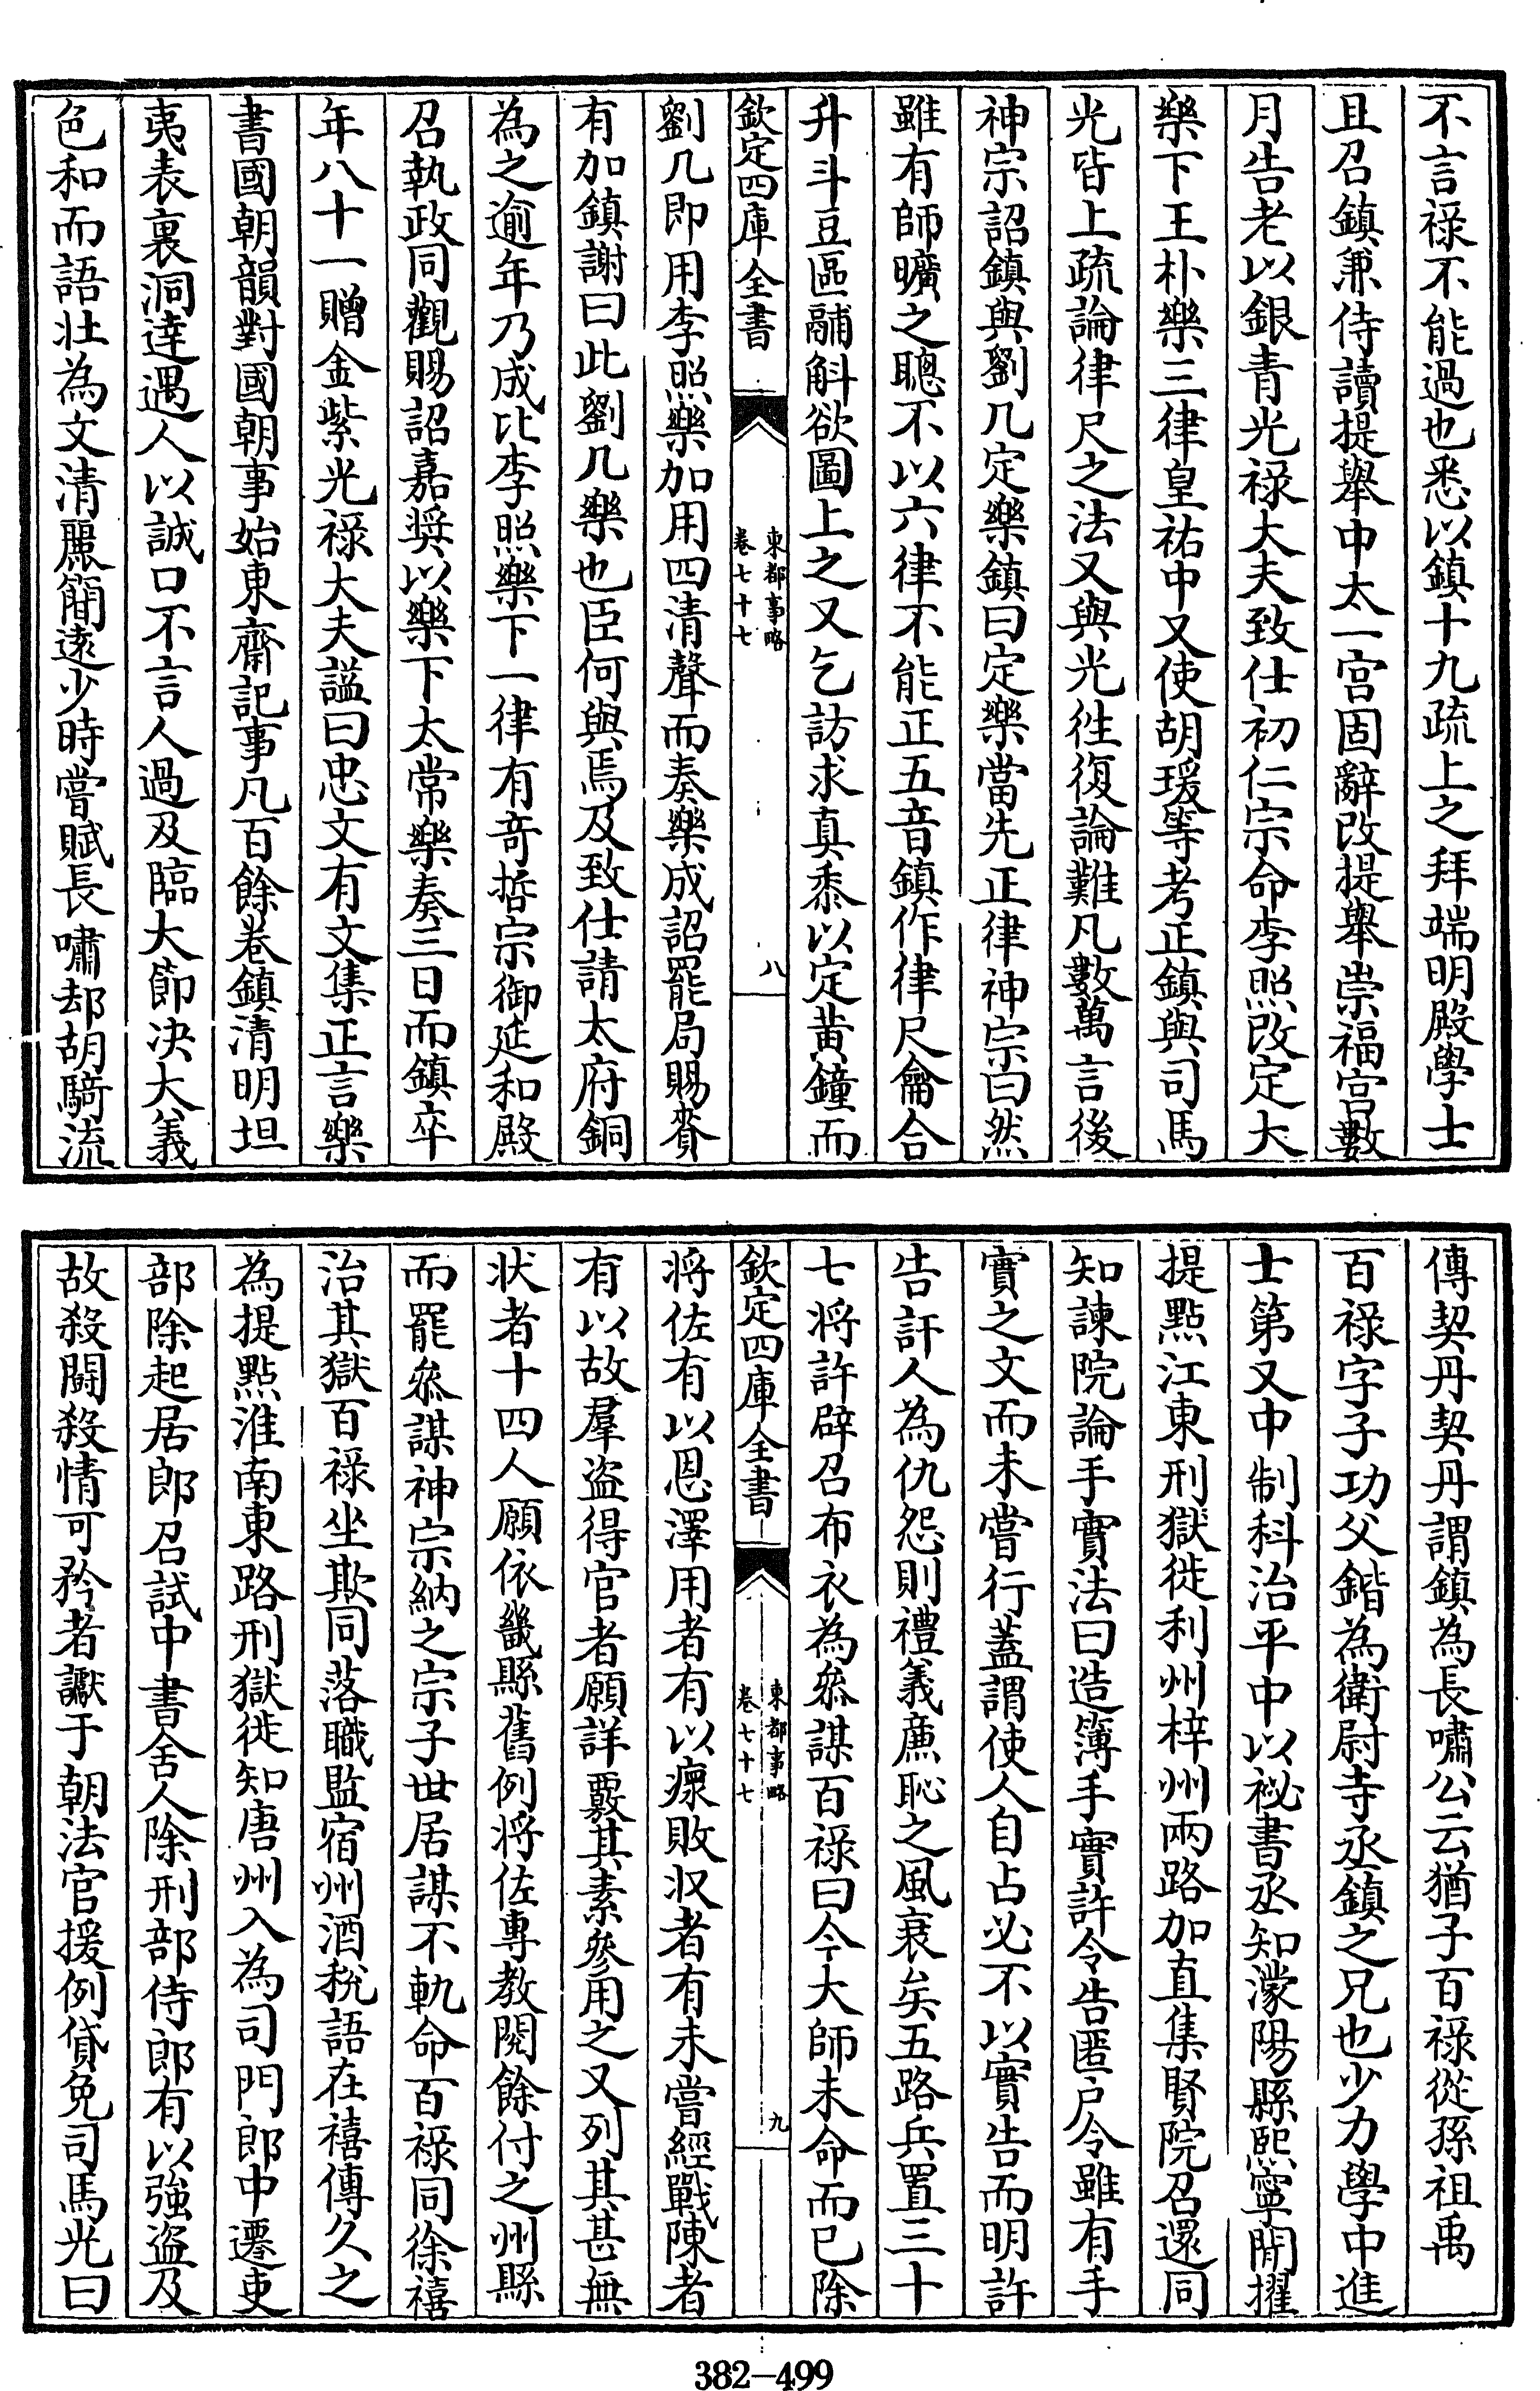 不言禄不能過也悉以鎮十九疏上之拜端明殿學士
且召鎮兼侍讀提舉中太一宫固辭改提舉崇福宫數
月告老以銀青光禄大夫致仕初仁宗命李照改定大
樂下王朴樂三律皇祐中又使胡瑗等考正鎮與司馬
光皆上疏論律尺之法又與光徃復論難凡數萬言後
神宗詔鎮與劉几定樂鎮曰定樂當先正律神宗曰然
雖有師曠之聰不以六律不能正五音鎮作律尺龠合
升斗豆區鬴斛欲圖上之又乞訪求真黍以定黄鐘而
欽定四庫全書
東都事略
卷七十七
八
劉几即用李照樂加用四清聲而奏樂成詔罷局賜賚
有加鎮謝曰此劉几樂也臣何與焉及致仕請太府銅
為之逾年乃成比李照樂下一律有奇哲宗御延和殿
召執政同觀賜詔嘉奬以樂下太常樂奏三日而鎮卒
年八十一贈金紫光禄大夫謚曰忠文有文集正言樂
書國朝韻對國朝事始東齋記事凡百餘卷鎮清明坦
夷表裏洞達遇人以誠口不言人過及臨大節决大義
色和而語壮為文清麗簡遠少時嘗賦長嘯却胡騎流
傳契丹契丹謂鎮為長嘯公云猶子百禄從孫祖禹
百禄字子功父鍇為衛尉寺丞鎮之兄也少力學中進
士第又中制科治平中以祕書丞知濛陽縣熙寧間擢
提點江東刑獄徙利州梓州兩路加直集賢院召還同
知諫院論手實法曰造簿手實許令告匿户令雖有手
實之文而未嘗行蓋謂使人自占必不以實告而明許
告訐人為仇怨則禮義亷恥之風衰矣五路兵置三十
七将許辟召布衣為叅謀百禄曰今大師未命而已除
欽定四庫全書
東都事略
卷七十七
九
将佐有以恩澤用者有以瘝敗収者有未嘗經戰陳者
有以故羣盗得官者願詳覈其素叅用之又列其甚無
状者十四人願依畿縣舊例将佐專教閱餘付之州縣
而罷叅謀神宗納之宗子世居謀不軌命百禄同徐禧
治其獄百禄坐欺同落職監宿州酒稅語在禧傳久之
為提點淮南東路刑獄徙知唐州入為司門郎中遷吏
部除起居郎召試中書舍人除刑部侍郎有以強盗及
故殺鬭殺情可矜者讞于朝法官援例貸免司馬光曰
382-499